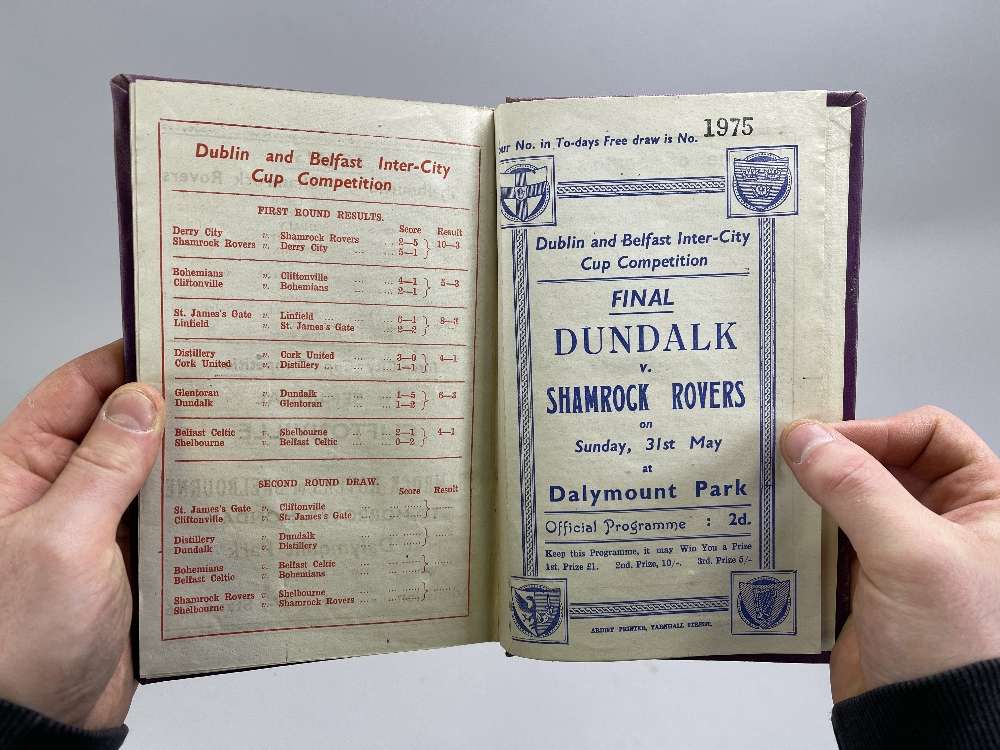 Dublin and Belfast Inter-City
Cup Competition
FIRST ROUND RESULTS.
Score Result
Derry City v. Shamrock Rovers .. 2—5 } 10—3
Shamrock Rovers v. Derry City ... ... 5—1
Bohemians v. Cliftonville ... ... 4—1 } 5—3
Cliftonville v. Bohemians ... ... 2—1
St. James's Gate v. Linfield ... ... ... 6—1 } 8—3
Linfield v. St. James's Gate ... 2—2
Distillery v. Cork United ... ... 3—0 } 4—1
Cork United v. Distillery ... ... ... 1—1
Glentoran v. Dundalk ... ... ... 1—5 } 6—3
Dundalk v. Glentoran ... ... 1—2
Belfast Celtic v. Shelbourne ... ... 2—1 } 4—1
Shelbourne v. Belfast Celtic ... ... 0—2
SECOND ROUND DRAW.
Score Result
St. James's Gate v. Cliftonville
Cliftonville v. St. James's Gate
Distillery v. Dundalk
Dundalk v. Distillery
Bohemians v. Belfast Celtic
Belfast Celtic v. Bohemians
Shamrock Rovers v. Shelbourne
Shelbourne v. Shamrock Rovers
No. in To-days Free draw is No. 1975
Dublin and Belfast Inter-City
Cup Competition
FINAL
DUNDALK
v.
SHAMROCK ROVERS
on
Sunday, 31st May
at
Dalymount Park
Official Programme : 2d.
Keep this Programme, it may Win You a Prize
1st. Prize £1. 2nd. Prize, 10/-. 3rd. Prize 5/-
PRINTER, YARNHALL STREET.